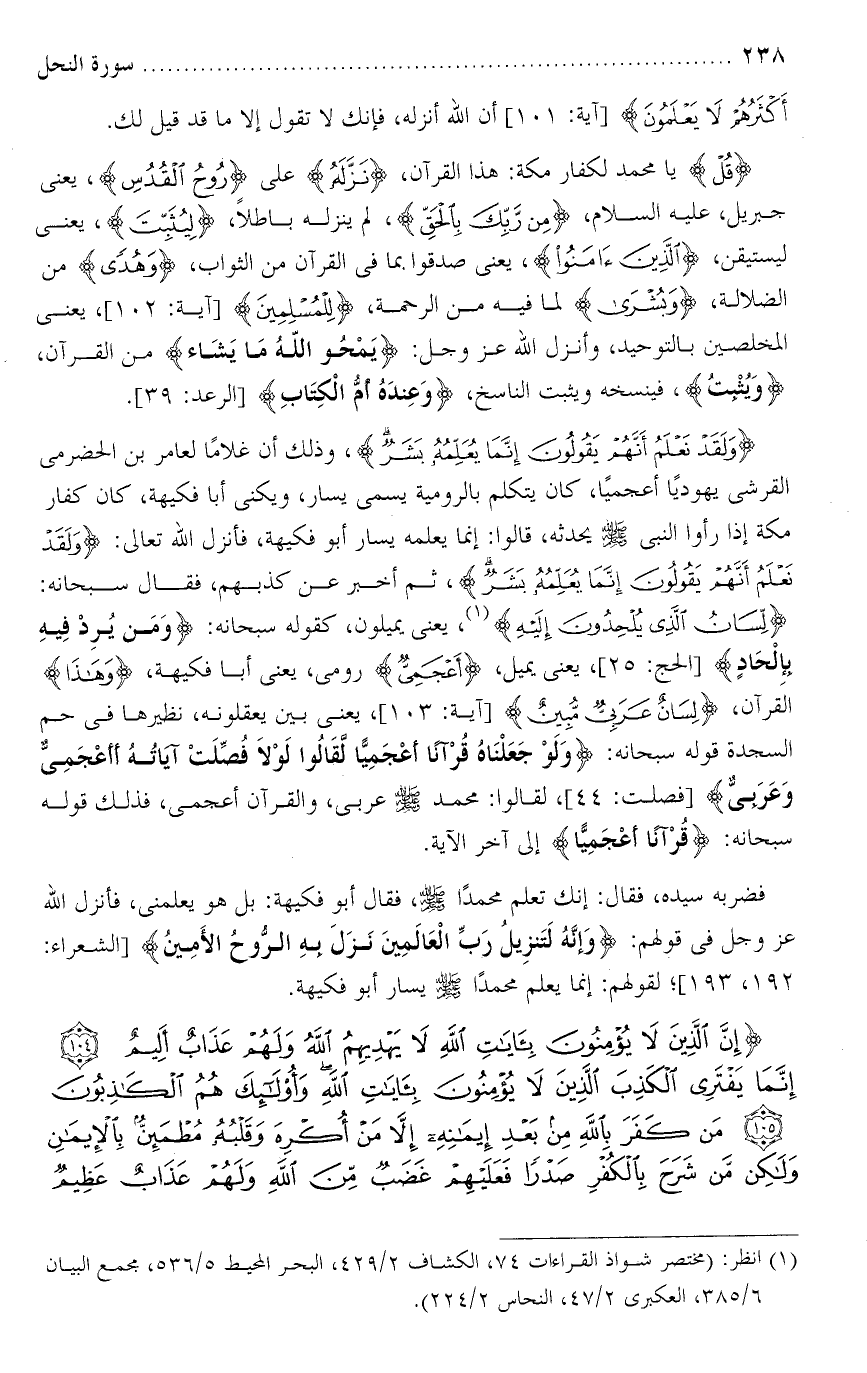 ٢٣٨ ........................................................................ سورة النحل
أَكْثَرُهُمْ لَا يَعْلَمُونَ﴾ [آية: ١٠١] أن الله أنزله، فإنك لا تقول إلا ما قد قيل لك.
﴿قُلْ﴾ يا محمد لكفار مكة: هذا القرآن، ﴿نَزَّلَهُ﴾ على ﴿رُوحُ ٱلْقُدُسِ﴾، يعنى
جبريل، عليه السلام، ﴿مِن رَّبِّكَ بِٱلْحَقِّ﴾، لم ينزله باطلاً، ﴿لِيُثَبِّتَ﴾، يعنى
ليستيقن، ﴿ٱلَّذِينَ ءَامَنُوا۟﴾، يعنى صدقوا بما فى القرآن من الثواب، ﴿وَهُدًى﴾ من
الضلالة، ﴿وَبُشْرَىٰ﴾ لما فيه من الرحمة، ﴿لِلْمُسْلِمِينَ﴾ [آية: ١٠٢]، يعنى
المخلصين بالتوحيد، وأنزل الله عز وجل: ﴿يَمْحُو اللهُ مَا يَشَاء﴾ من القرآن،
﴿وَيُثْبِتُ﴾، فينسخه ويثبت الناسخ، ﴿وَعِندَهُ أمُّ الْكِتَابِ﴾ [الرعد: ٣٩].
﴿وَلَقَدْ نَعْلَمُ أَنَّهُمْ يَقُولُونَ إِنَّمَا يُعَلِّمُهُۥ بَشَرٌ ۗ﴾، وذلك أن غلامًا لعامر بن الحضرمى
القرشى يهوديًا أعجميًا، كان يتكلم بالرومية يسمى يسار، ويكنى أبا فكيهة، كان كفار
مكة إذا رأوا النبى ﷺ يحدثه، قالوا: إنما يعلمه يسار أبو فكيهة، فأنزل الله تعالى: ﴿وَلَقَدْ
نَعْلَمُ أَنَّهُمْ يَقُولُونَ إِنَّمَا يُعَلِّمُهُۥ بَشَرٌ ۗ﴾، ثم أخبر عن كذبهم، فقال سبحانه:
﴿لِّسَانُ ٱلَّذِى يُلْحِدُونَ إِلَيْهِ﴾(١)، يعنى يميلون، كقوله سبحانه: ﴿وَمَن يُرِدْ فِيهِ
بِإِلْحَادٍ﴾ [الحج: ٢٥]، يعنى يميل، ﴿أَعْجَمِىٌّ﴾ رومى، يعنى أبا فكيهة، ﴿وَهَٰذَا﴾
القرآن، ﴿لِسَانٌ عَرَبِىٌّ مُّبِينٌ﴾ [آية: ١٠٣]، يعنى بين يعقلونه، نظيرها فى حم
السجدة قوله سبحانه: ﴿وَلَوْ جَعَلْنَاهُ قُرْآنًا أعْجَمِيًّا لَّقَالُوا لَوْلاَ فُصِّلَتْ آيَاتُهُ أأعْجَمِىٌّ
وَعَرَبِىٌّ﴾ [فصلت: ٤٤]، لقالوا: محمد ﷺ عربى، والقرآن أعجمى، فذلك قوله
سبحانه: ﴿قُرْآنًا أعْجَمِيًّا﴾ إلى آخر الآية.
فضربه سيده، فقال: إنك تعلم محمدًا ﷺ، فقال أبو فكيهة: بل هو يعلمنى، فأنزل الله
عز وجل فى قولهم: ﴿وَإنَّهُ لَتَنزِيلُ رَبِّ الْعَالَمِينَ نَزَلَ بِهِ الرُّوحُ الأَمِينُ﴾ [الشعراء:
١٩٢، ١٩٣]؛ لقولهم: إنما يعلم محمدًا ﷺ يسار أبو فكيهة.
﴿إِنَّ ٱلَّذِينَ لَا يُؤْمِنُونَ بِـَٔايَٰتِ ٱللَّهِ لَا يَهْدِيهِمُ ٱللَّهُ وَلَهُمْ عَذَابٌ أَلِيمٌ ١٠٤
إِنَّمَا يَفْتَرِى ٱلْكَذِبَ ٱلَّذِينَ لَا يُؤْمِنُونَ بِـَٔايَٰتِ ٱللَّهِ ۖ وَأُو۟لَٰٓئِكَ هُمُ ٱلْكَٰذِبُونَ
١٠٥ مَن كَفَرَ بِٱللَّهِ مِنۢ بَعْدِ إِيمَٰنِهِۦٓ إِلَّا مَنْ أُكْرِهَ وَقَلْبُهُۥ مُطْمَئِنٌّۢ بِٱلْإِيمَٰنِ
وَلَٰكِن مَّن شَرَحَ بِٱلْكُفْرِ صَدْرًا فَعَلَيْهِمْ غَضَبٌ مِّنَ ٱللَّهِ وَلَهُمْ عَذَابٌ عَظِيمٌ
(١) انظر: (مختصر شواذ القراءات ٧٤، الكشاف ٤٢٩/٢، البحر المحيط ٥٣٦/٥، مجمع البيان
٣٨٥/٦، العكبرى ٤٧/٢، النحاس ٢٢٤/٢).